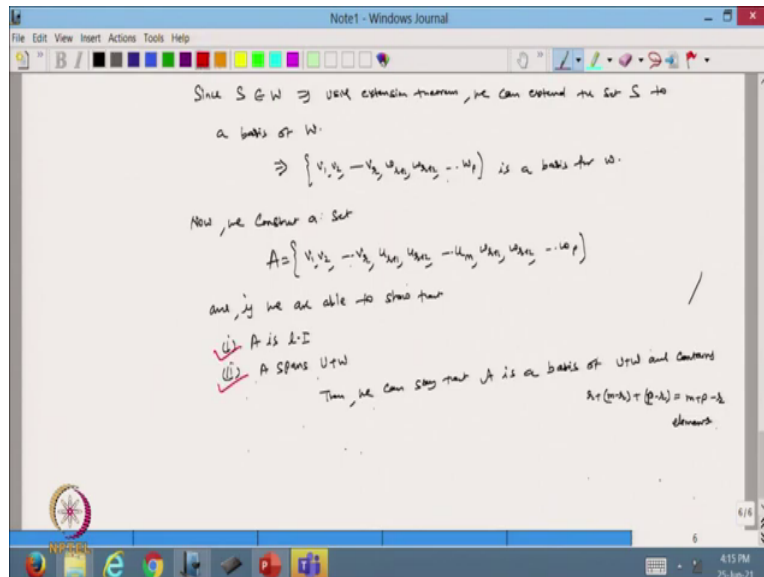 Note1 - Windows Journal
File Edit View Insert Actions Tools Help
Since S ⊆ W ⇒ using extension theorem, we can extend the set S to
a basis of W.
⇒ {v₁, v₂, --- vᵣ, wᵣ₊₁, wᵣ₊₂, --- wₚ} is a basis for W.
Now, we construct a set
A = {v₁, v₂, --- vᵣ, uᵣ₊₁, uᵣ₊₂, --- uₘ, wᵣ₊₁, wᵣ₊₂, --- wₚ}
and, if we are able to show that
(i) A is L.I
(ii) A spans U+W
Then, we can say that A is a basis of U+W and contains
r+(m-r)+(p-r) = m+p-r
elements.
6/6
6
NPTEL
4:15 PM
25-Jun-21